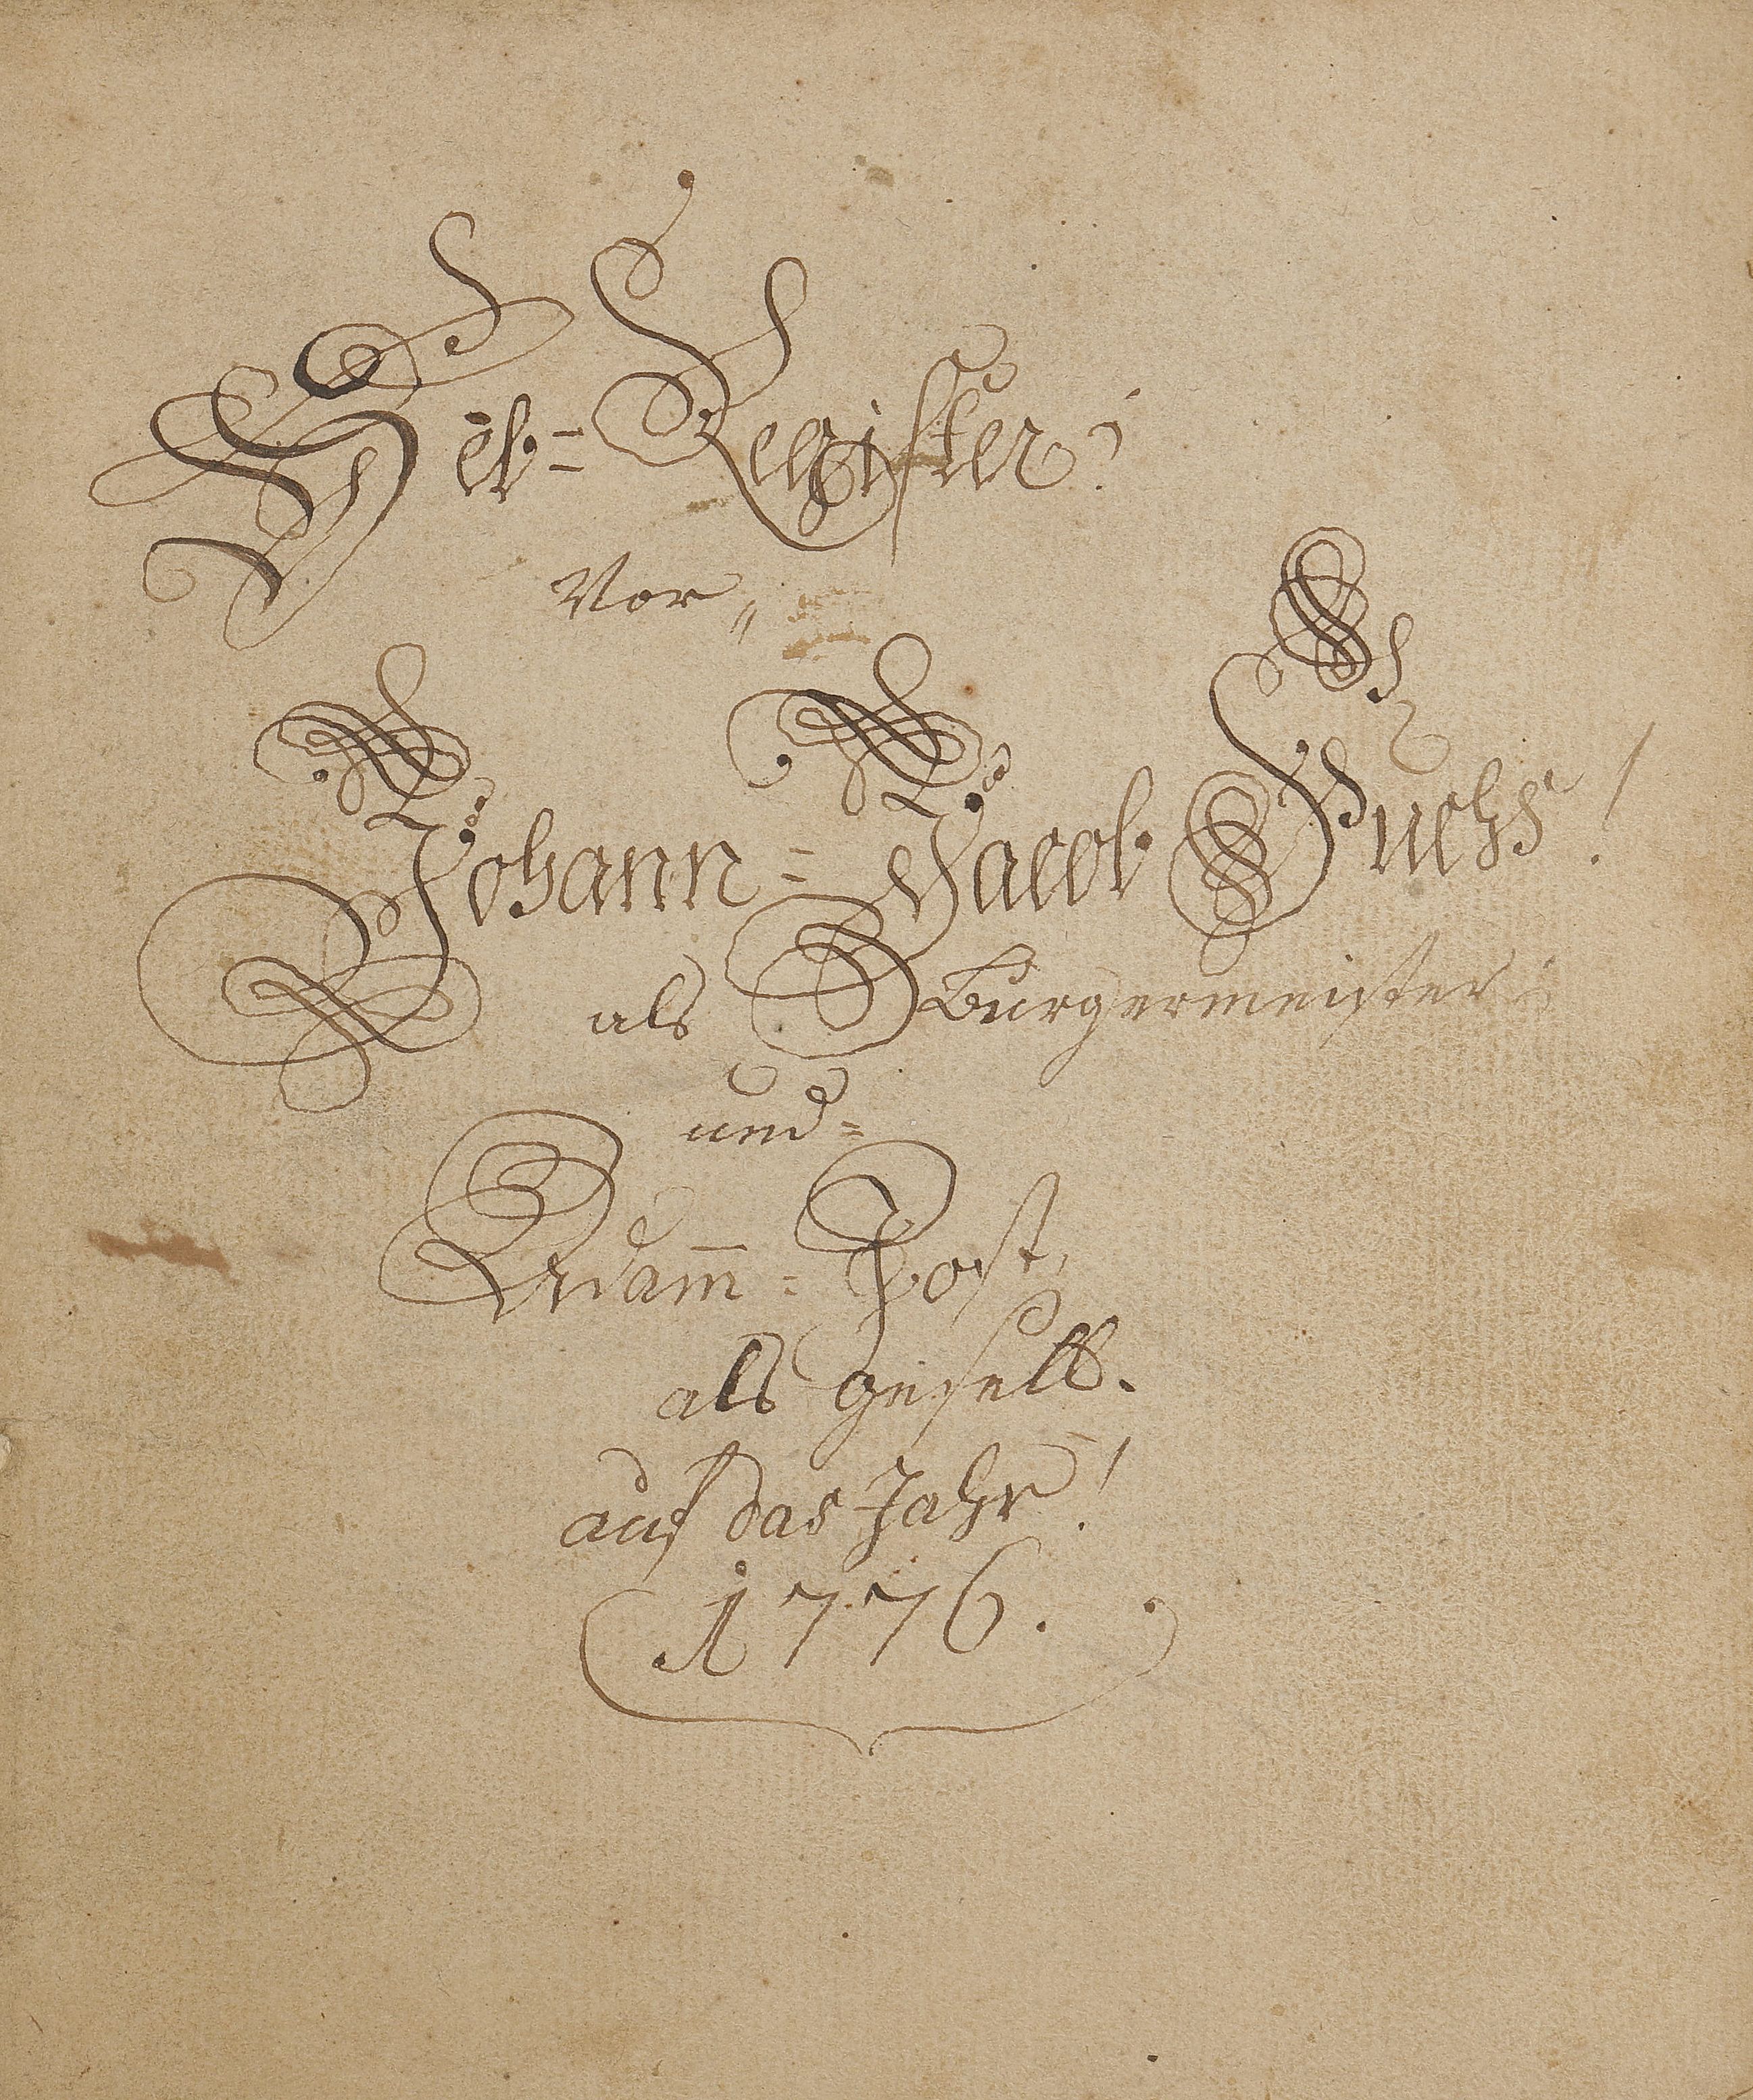 Heb=Register;
Vor„
Johann=Jacob Fuchs!
als Burgermeister;
und=
Adam̅=Jost,
als gesell.
auf das Jahr!
1776.